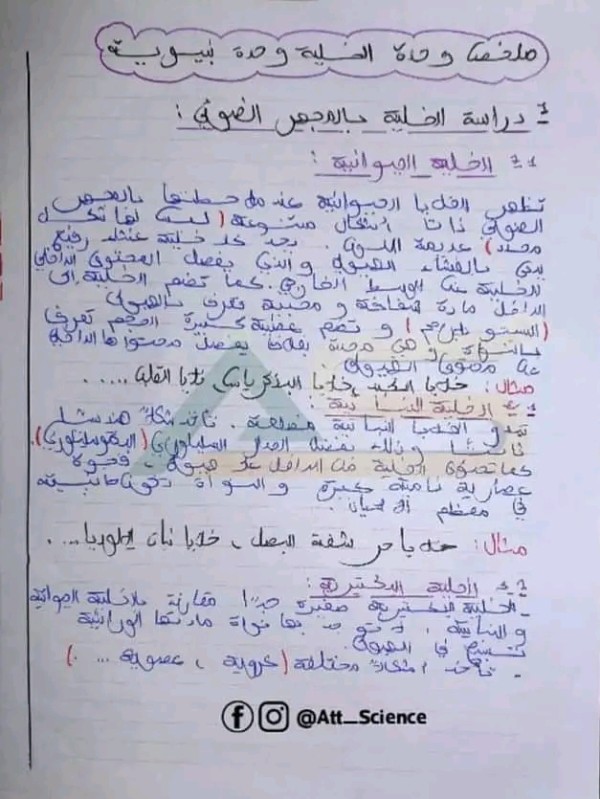 ملخص وحدة الخلية وحدة بنيوية
1- دراسة الخلية بالمجهر الضوئي :
1-1 الخلية الحيوانية :
تظهر الخلايا الحيوانية عند ملاحظتها بالمجهر
الضوئي ذات أشكال متنوعة (ليست لها شكل
محدد) عديمة اللون . يحد كل خلية غشاء رقيع
يدعى بالغشاء الهيولي والذي يفصل المحتوى الداخلي
للخلية عن الوسط الخارجي. كما تضم الخلية في
الداخل مادة شفافة و محببة تعرف بالهيولى
(السيتوبلازم) و تضم عضية كبيرة الحجم تعرف
بالنواة و هي محددة بغلاف يفصل محتواها الداخلي
عن محتوى الهيولى.
مثال: خلايا الكبد، خلايا البنكرياس، خلايا القلب .....
الخلية النباتية :
الخلايا النباتية مضلعة .
وذلك بفضل الجدار السليلوزي (البكتوسليلوزي).
كما تحتوي الخلية في الداخل على هيولى ، فجوة
عصارية نامية كبيرة و النواة تكون جانبية
في معظم الأحيان.
مثال: خلايا حرشفة البصل ، خلايا نبات إيلوديا....
الخلية البكتيرية :
- الخلية البكتيرية صغيرة جدا مقارنة بالخلية الحيوانية
و النباتية ، لا توجد بها نواة مادتها الوراثية
تسبح في الهيولى.
- تأخذ أشكالا مختلفة (كروية ، عصوية ... )
@Att_Science